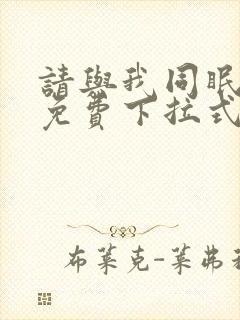 請與我同眠
免費下拉式
布萊克-萊弗利